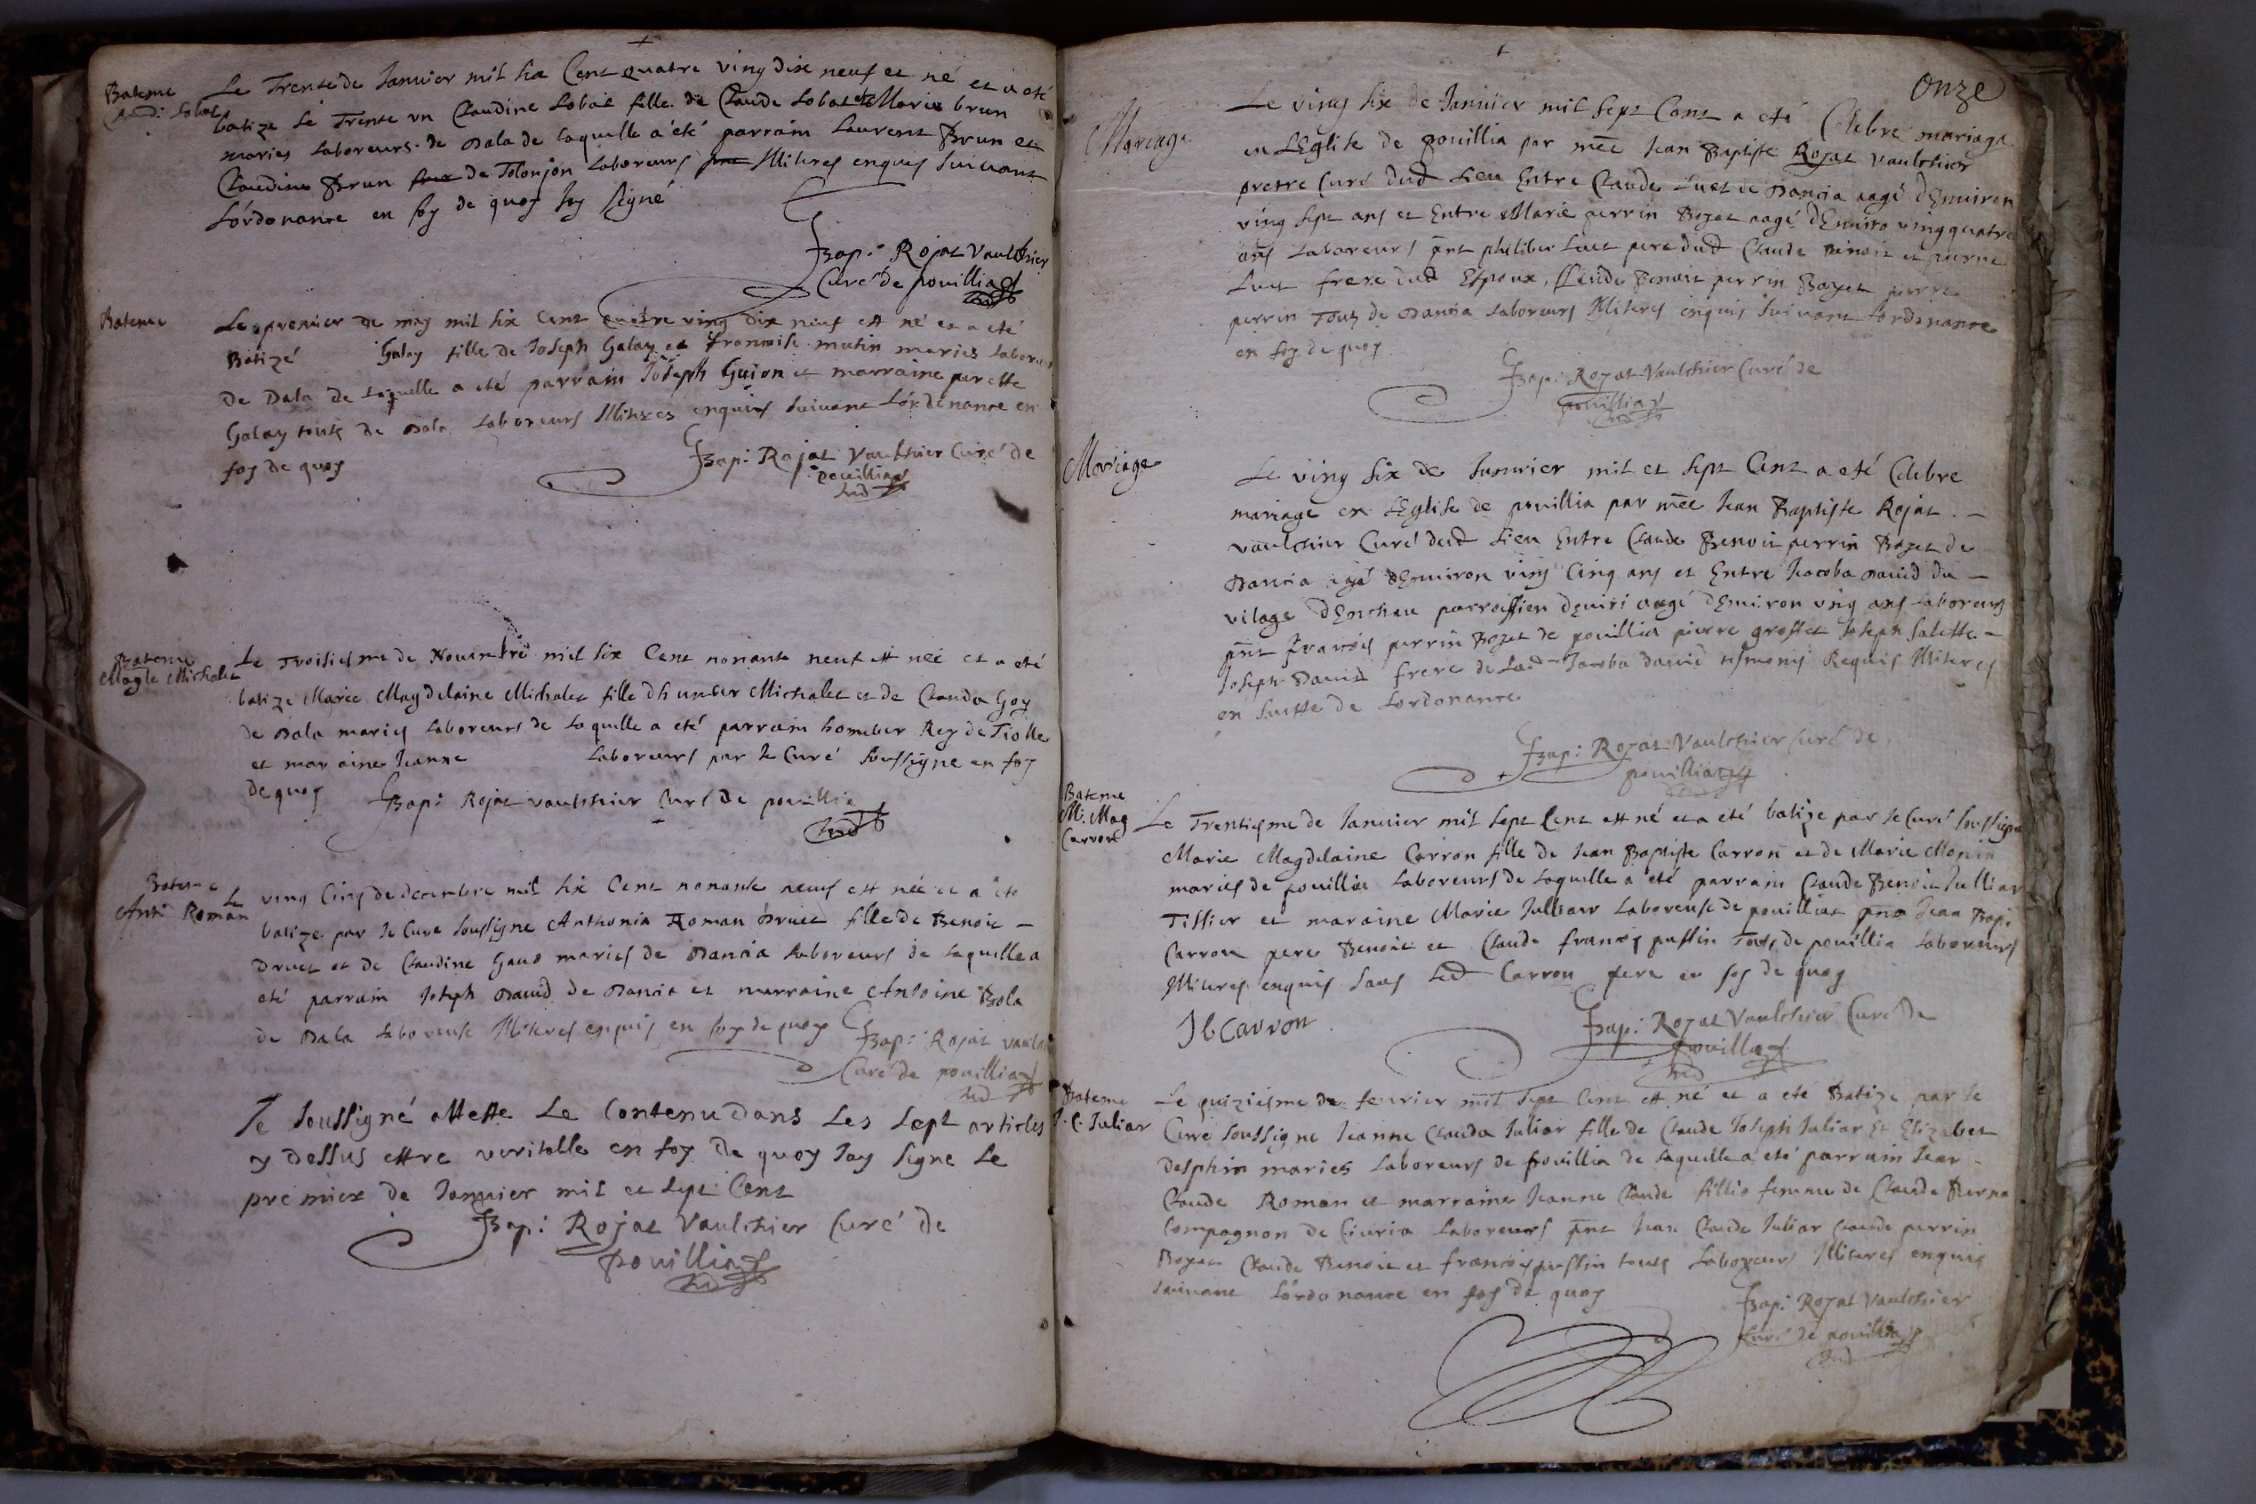 +
Bateme
Claudi: Lobat
Le Trente de Janvier mil six Cent quatre ving dix neuf et né et a eté
batize Le Trente un Claudine Lobat fille de Claude Lobat et Marie brun
maries Laboreurs de Dala de Laquelle a été parrain Laurent Brun et
Claudine Brun de Tolonjon Laboreurs Miteres enquis Suivant
Lórdonance en foy de quoy Jay signé
JBap: Rojat Vaulchier
Curé de pouillia
Bateme
Le premier de may mil six Cent quatre ving dix neuf est né et a eté
Batizé Galay fille de Joseph Galay et francoise mutin maries Laboreurs
De Dala de Laquelle a eté parrain Joseph Guion et marraine perette
Galay touts de Dala Laboreurs Miteres enquis Suivant Lórdénance en
foy de quoy
JBap: Rojat Vaulchier Curé de
pouillia
Bateme
Magle Michalet
Le Troisiesme de Novembre mil six Cent nonante neuf est née et a eté
batize Marie Magdelaine Michalet fille dhumber Michalet et de Clauda Goy
de Dala maries Laboreurs de Laquelle a eté parrain homber Rey de Tiolle
et maraine Jeanne Laboreurs par le Curé Soussigne en foy
de quoy
JBap: Rojat vaulchier Curé de pouillia
Bateme
Anth: Roman
Le ving Cinq de decembre mil six Cent nonante neuf est née et a eté
batize par le Cure Soussigne Anthonia Roman Druet fille de Benoit –
Druet et de Claudine Gaud maries de Dancia Laboreurs de Laquelle a
eté parrain Joseph David de Dancia et marraine Antoine Bola
de Dala Laboreuse Miteres enquis en foy de quoy
JBap: Rojat vaul
Curé de pouillia
Je Soussigné atteste Le Contenu dans Les Sept articles
cy dessus estre veritable en foy de quoy Jay Signe Le
premier de Janvier mil et Sept Cent
JBap: Rojat Vaulchier Curé de
pouillia
+
Onze
Mariage
Le ving six de Janvier mil Sept Cent a eté Celebre mariage
en LEglise de pouillia par mre Jean Baptiste Rojat vaulchier
pretre Curé dud Lieu Entre Claude Luet de Dancia aagé dEnviron
ving sept ans et Entre Marie perrin Bozet aagé dEnviro ving quatre
ans Laboreurs pnt philiber Luet pere dud Claude Benoit et pierre
Luet frere dud Espoux, Claude Benoit perrin Bozet pierre
perrin Touts de Dancia Laboreurs Miteres enquis Suivant Lordonance
en foy de quoy
JBap: Rojat Vaulchier Curé de
pouillia
Mariage
Le ving Six de Janvier mil et Sept Cent a eté Celebre
mariage en LEglise de pouillia par mre Jean Baptiste Rojat –
vaulchier Curé dud Lieu Entre Claude Benoit perrin Bozet de
Dancia agé dEnviron ving Cinq ans et Entre Jacoba David du –
vilage dEnchau parroissien dviri aagé dEnviron ving ans Laboreurs
pnt francois perrin Bozet de pouillia pierre grosset Joseph Salette –
Joseph David frere de Lad Jacoba David tesmoins Requis Miteres
en Suitte de Lordonance
JBap: Rojat Vaulchier Curé de
pouillia
Bateme
M. Mag
Carron
Le Trentiesme de Janvier mil Sept Cent est né et a eté batize par le Curé Soussigne
Marie Magdelaine Carron fille de Jean Baptiste Carron et de Marie Monin
maries de pouillia Laboreurs de Laquelle a eté parrain Claude Benoit Julliar
Tissier et maraine Marie Julliar Laboreuse de pouilliat pnt Jean Bapt
Carron pere Benoit et Claude francois pussin Touts de pouillia Laboreurs
Miteres enquis Sauf Led Carron pere en foy de quoy
Jb Carron
JBap: Rojat Vaulchier Curé de
pouillia
Bateme
J. C. Juliar
Le quiziesme de fevrier mil Sept Cent est né et a eté Batize par le
Curé Soussigne Jeanne Clauda Juliar fille de Claude Joseph Juliar Et Elizabet
Delphin maries Laboreurs de pouillia de Laquelle a eté parrain Jean
Claude Roman et marraine Jeanne Claude fillio femme de Claude Pierre
Compagnon de Civria Laboreurs pnt Jean Claude Juliar Claude perrin
Bozet Claude Benoit et francois pussin touts Laboreurs Miteres enquis
Suivant Lórdonance en foy de quoy
JBap: Rojat Vaulchier
Curé de pouillia